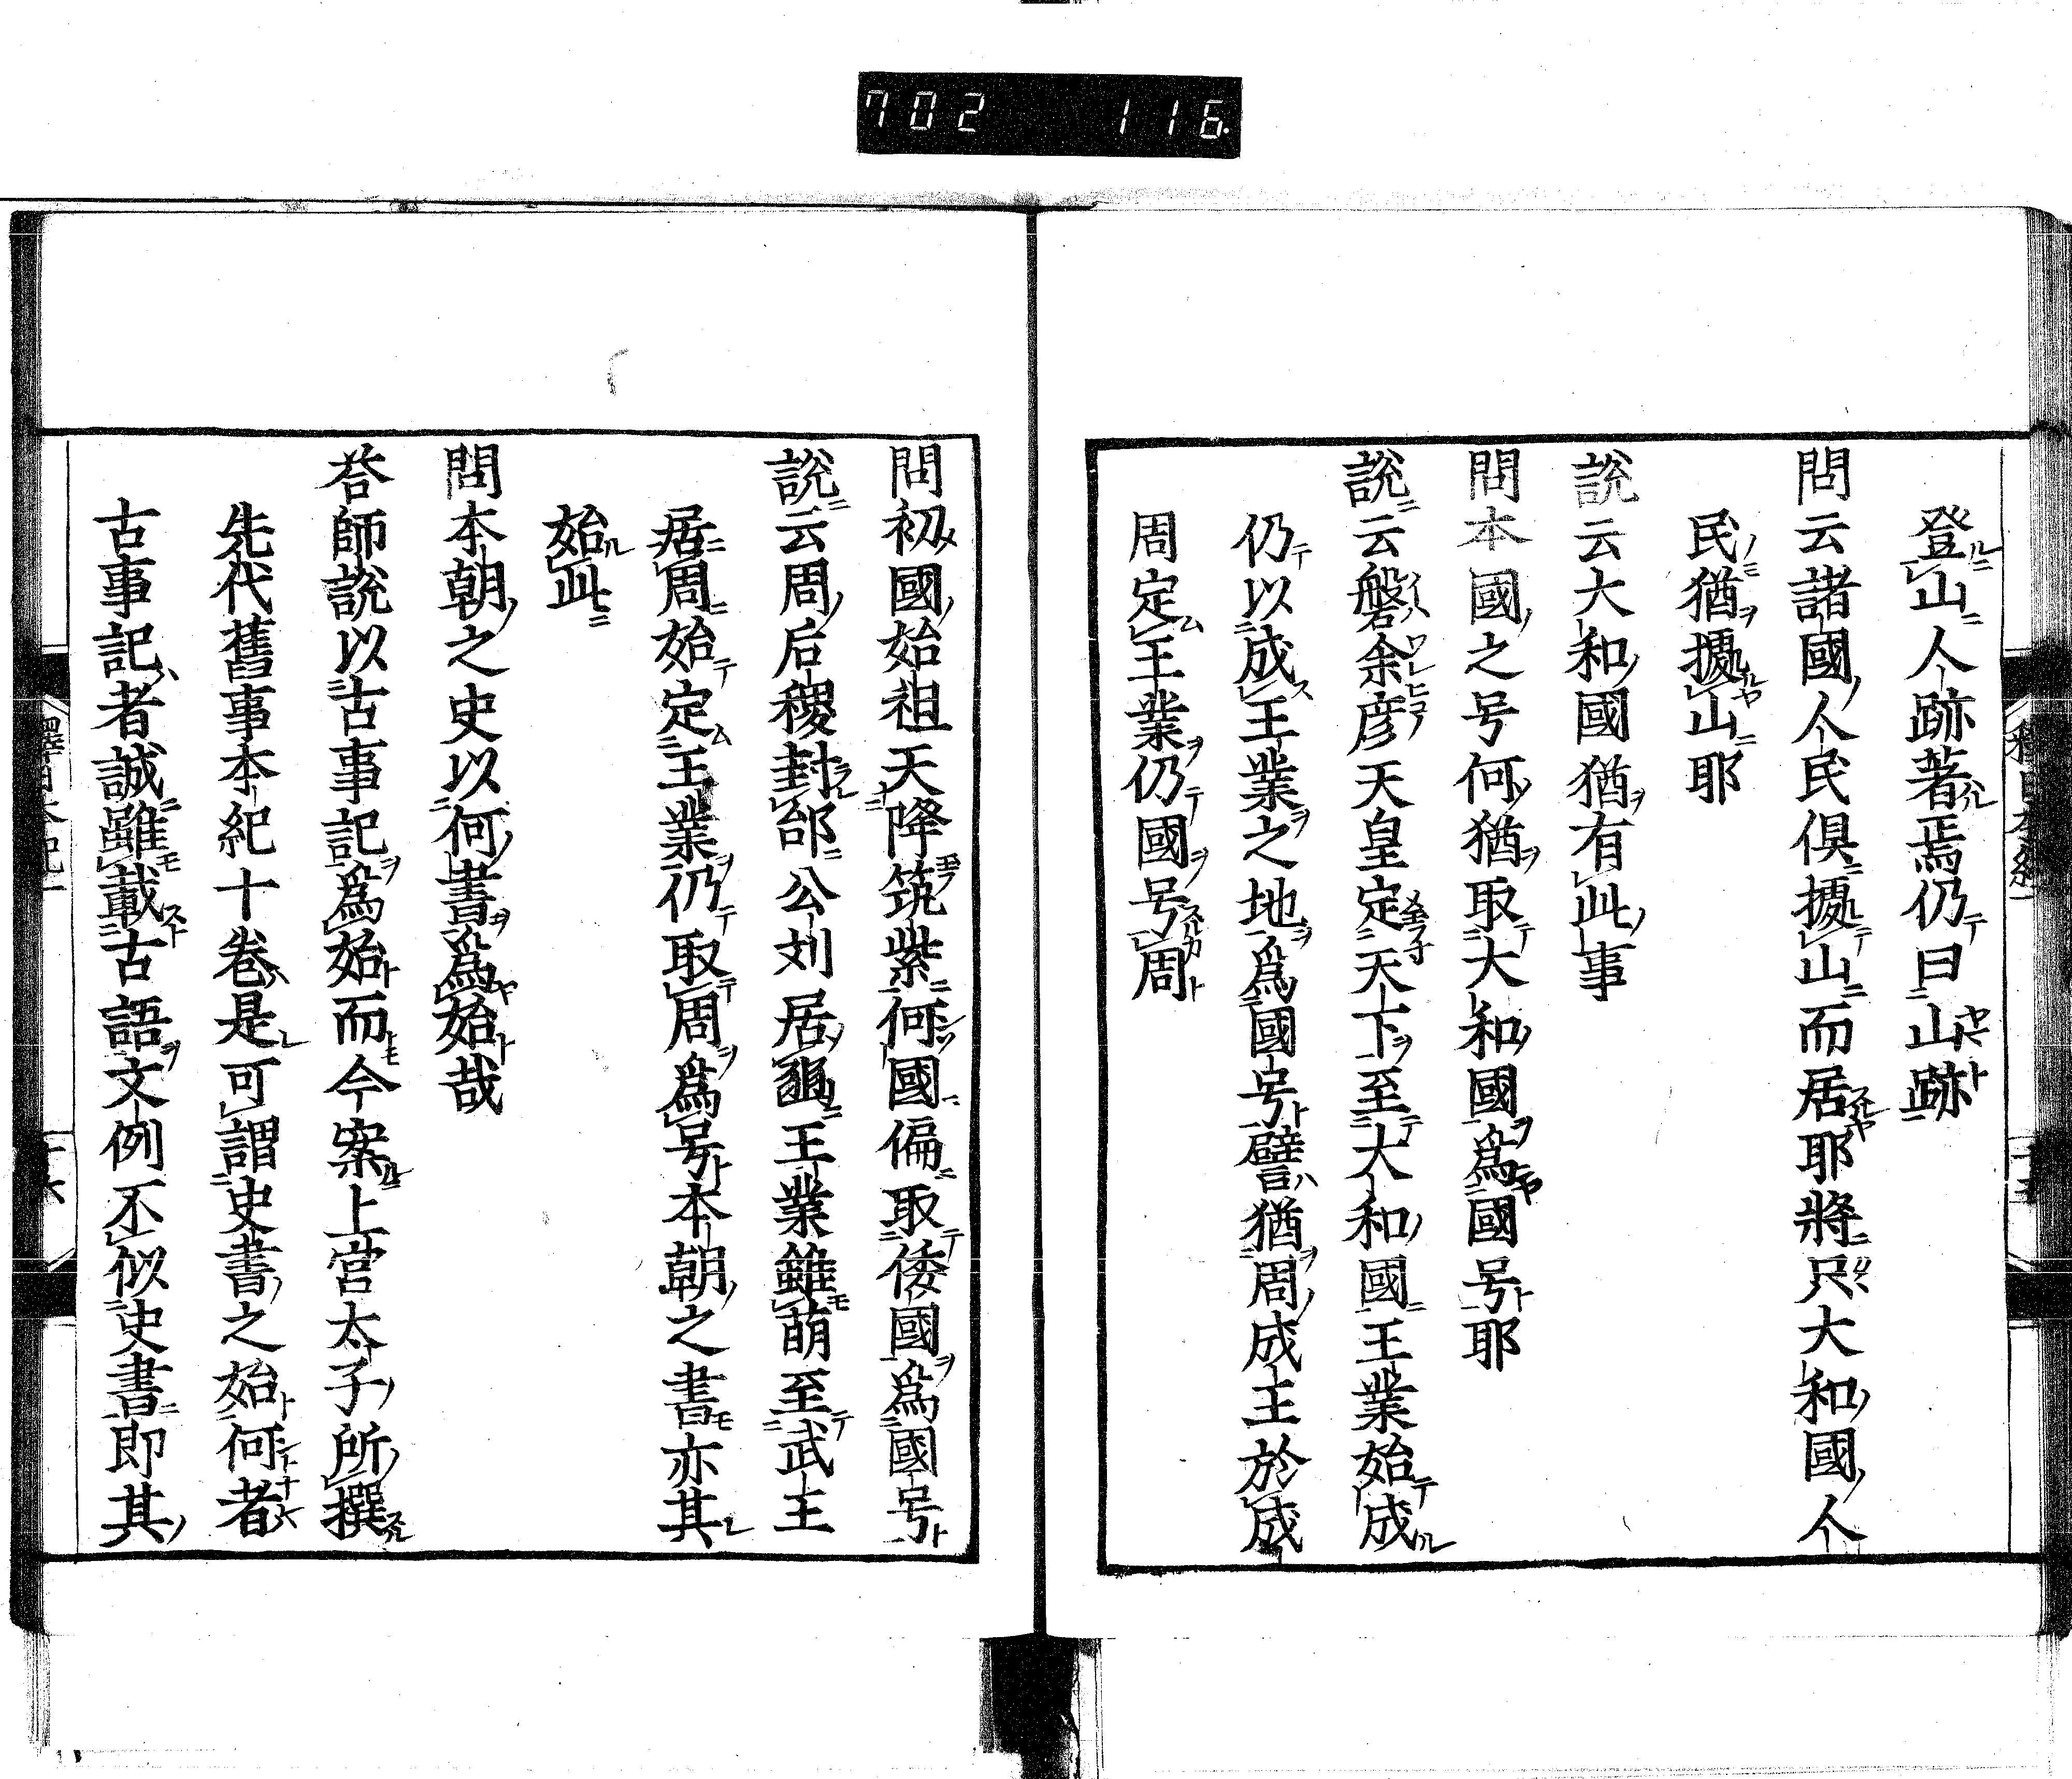 702 116
登山人跡著焉仍曰山跡
問云諸國人民俱據山而居耶將只大和國人
民猶據山耶
説云大和國猶有此事
問本國之号何猶取大和國爲國号耶
説云磐余彦天皇定天下至大和國王業始成
仍以成王業之地爲國号譬猶周成王於成
周定王業仍國号周
問初國始祖天降筑紫何國偏取倭國爲國号
説云周后稷封邰公刘居豳王業雖萌至武王
居周始定王業仍取周爲号本朝之書亦其
始此
問本朝之史以何書爲始哉
荅師説以古事記爲始而今案上宮太子所撰
先代舊事本紀十巻是可謂史書之始何者
古事記者誠雖載古語文例不似史書即其